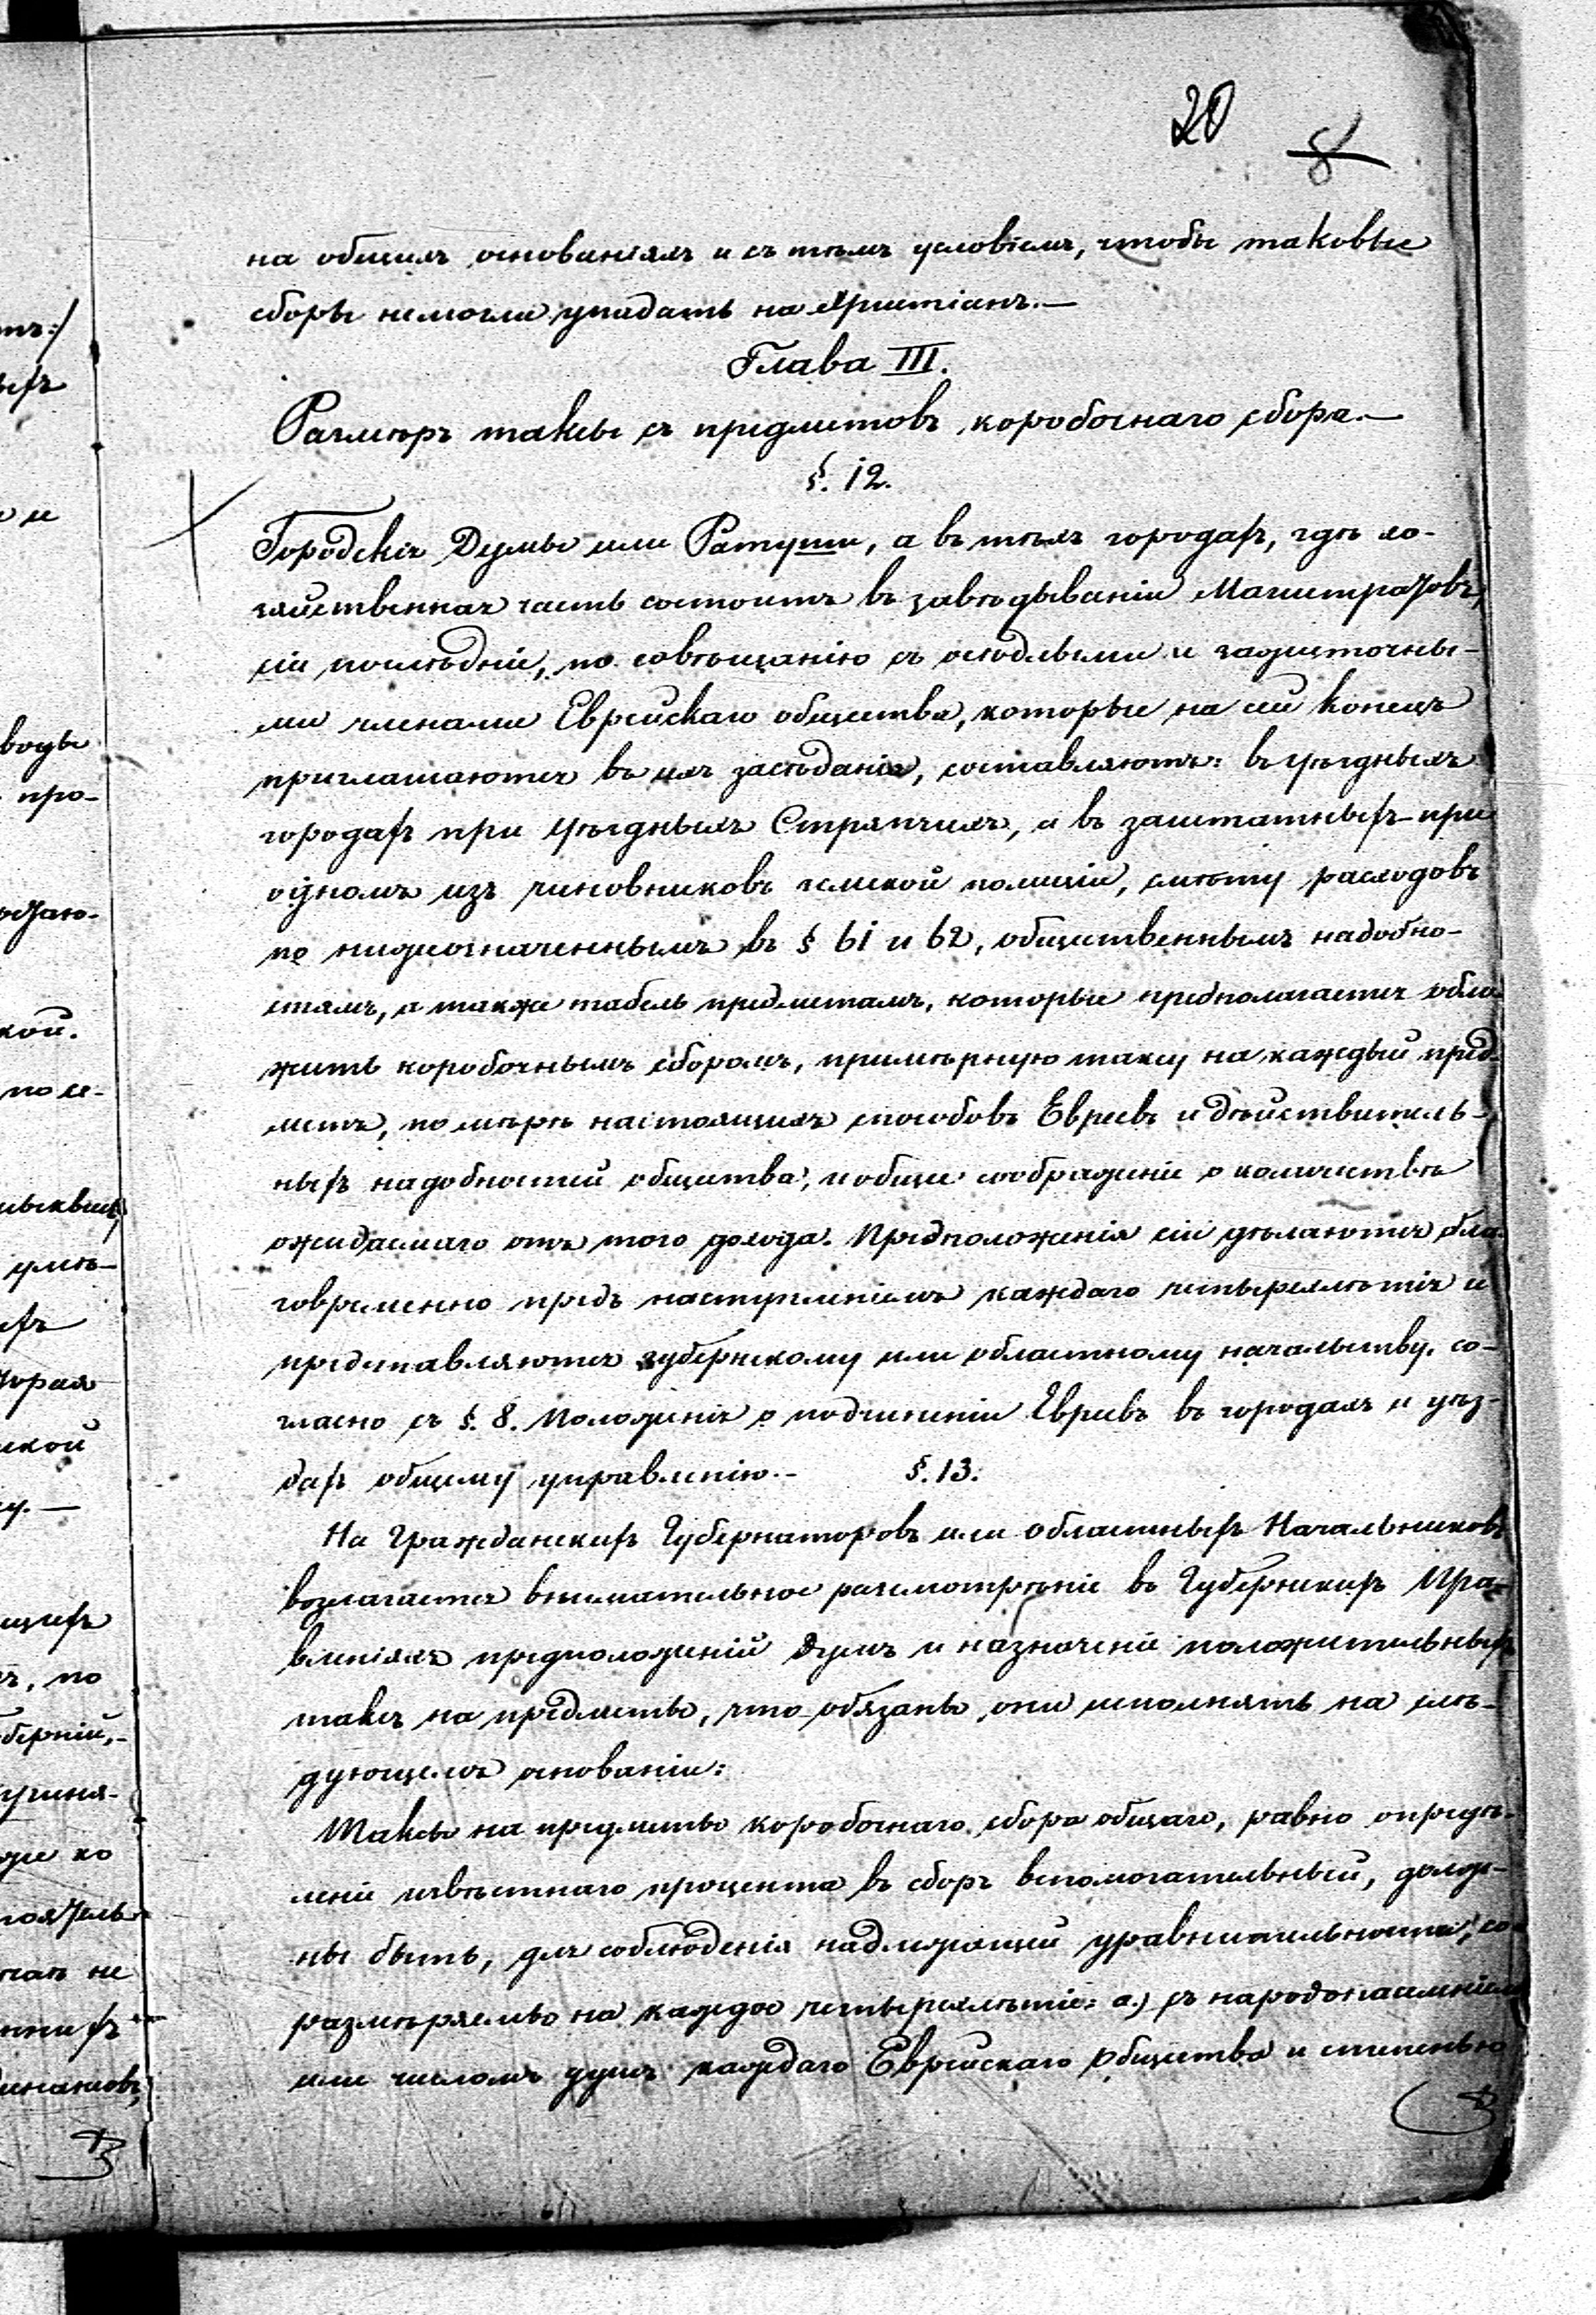 20
8
на общихъ основаніяхъ и съ тѣмъ условіемъ, чтобы таковые
сборы немогли упадать на Христіанъ.—
Глава III.
Размѣръ таксы съ предметовъ коробочнаго сбора.—
§. 12.
Городскія Думы или Ратуши, а въ тѣхъ городахъ, гдѣ хо-
зяйственная часть состоитъ въ завѣдываніи Магистратовъ,
сіи послѣдніе, по совѣщанію съ осѣдлыми и зажиточны-
ми членами Еврейскаго общества, которые на сей конецъ
приглашаются въ ихъ засѣданія, составляютъ: въ уѣздныхъ
городахъ при уѣздныхъ Стряпчихъ, а въ заштатныхъ при
одномъ изъ чиновниковъ земской полиціи, смѣту расходовъ
по нижеозначеннымъ въ § 61 и 62, общественнымъ надобно-
стямъ, а также табель предметамъ, которые предполагается обло-
жить коробочнымъ сборомъ, примѣрную таксу на каждый пред-
метъ, по мѣрѣ настоящихъ способовъ Евреевъ и дѣйствитель-
ныхъ надобностей общества, и общее соображеніе о количествѣ
ожидаемаго отъ того дохода. Предположенія сіи дѣлаются бла-
говременно предъ наступленіемъ каждаго четырехлѣтія и
представляются губернскому или областному начальству, со-
гласно съ §. 8. Положенія о подчиненіи Евреевъ въ городахъ и уѣз-
дахъ общему управленію.— §. 13.
На Гражданскихъ Губернаторовъ или областныхъ Начальниковъ
возлагается внимательное разсмотрѣніе въ Губернскихъ Пра-
вленіяхъ предположеній Думъ и назначеніе положительныхъ
таксъ на предметы, что обязаны они исполнять на слѣ-
дующемъ основаніи:
Таксы на предметы коробочнаго сбора общаго, равно опредѣ-
леніе извѣстнаго процента въ сборъ вспомогательный, долж-
ны быть, для соблюденія надлежащей уравнительности, со-
размѣряемы на каждое четырехлѣтіе: а.) съ народонаселеніемъ
или числомъ душъ каждаго Еврейскаго общества и степенью